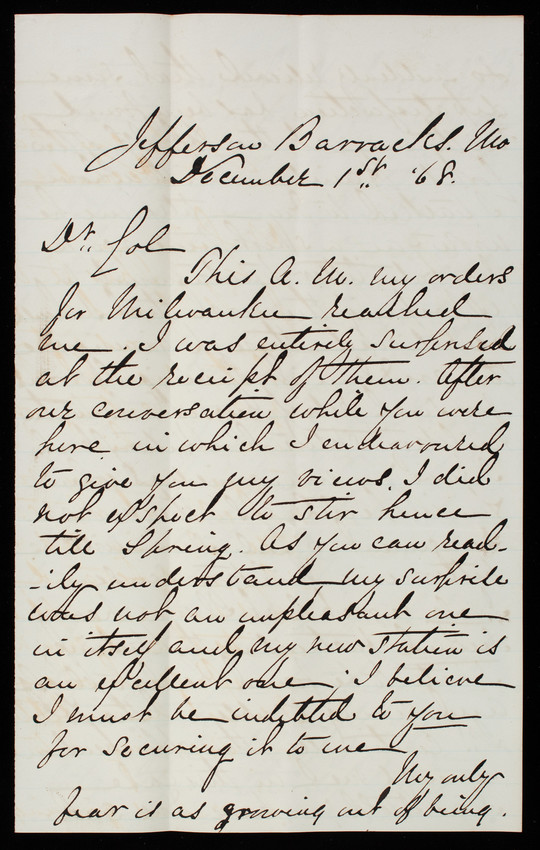 Jefferson Barracks. Mo
December 1st '68.
Dr. Col
This A. M. my orders
for Milwaukee reached
me. I was entirely surprised
at the receipt of them. After
our conversation while you were
here in which I endeavoured
to give you my views, I did
not expect to stir hence
till Spring. As you can read-
-ily understand my surprise
was not an unpleasant one
in itself and my new station is
an excellent one; I believe
I must be indebted to you
for securing it to me
My only
fear is as growing out of being.